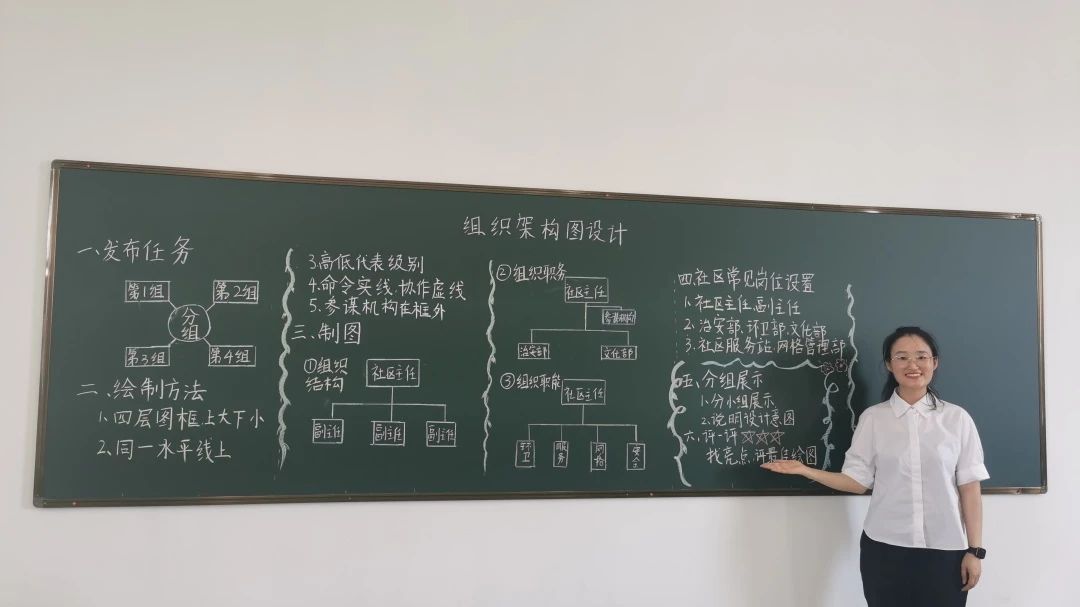 组织架构图设计
一、发布任务
第1组
第2组
分组
第3组
第4组
二、绘制方法
1、四层图框上大下小
2、同一水平线上
3、高低代表级别
4、命令实线、协作虚线
5、参谋机构在框外
三、制图
①组织结构
社区主任
副主任
副主任
副主任
②组织职务
社区主任
参谋机构
治安部
文化部
③组织职能
社区主任
环卫
服务
网格
安全
四、社区常见岗位设置
1、社区主任、副主任
2、治安部、环卫部、文化部
3、社区服务站、网格管理部
五、分组展示
1、分小组展示
2、说明设计意图
六、评一评☆☆☆
找亮点、评最佳绘图